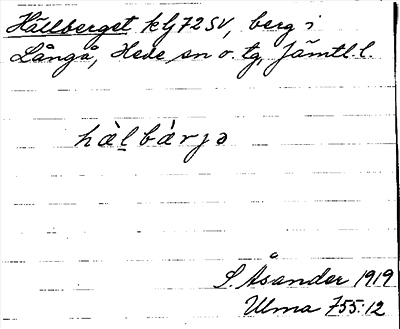 Hällberget klj 72 SV, berg i
Långå, Hede sn o. tg, Jämtl. l.
hælbærjə
S. Åsander 1919
Ulma 755:12